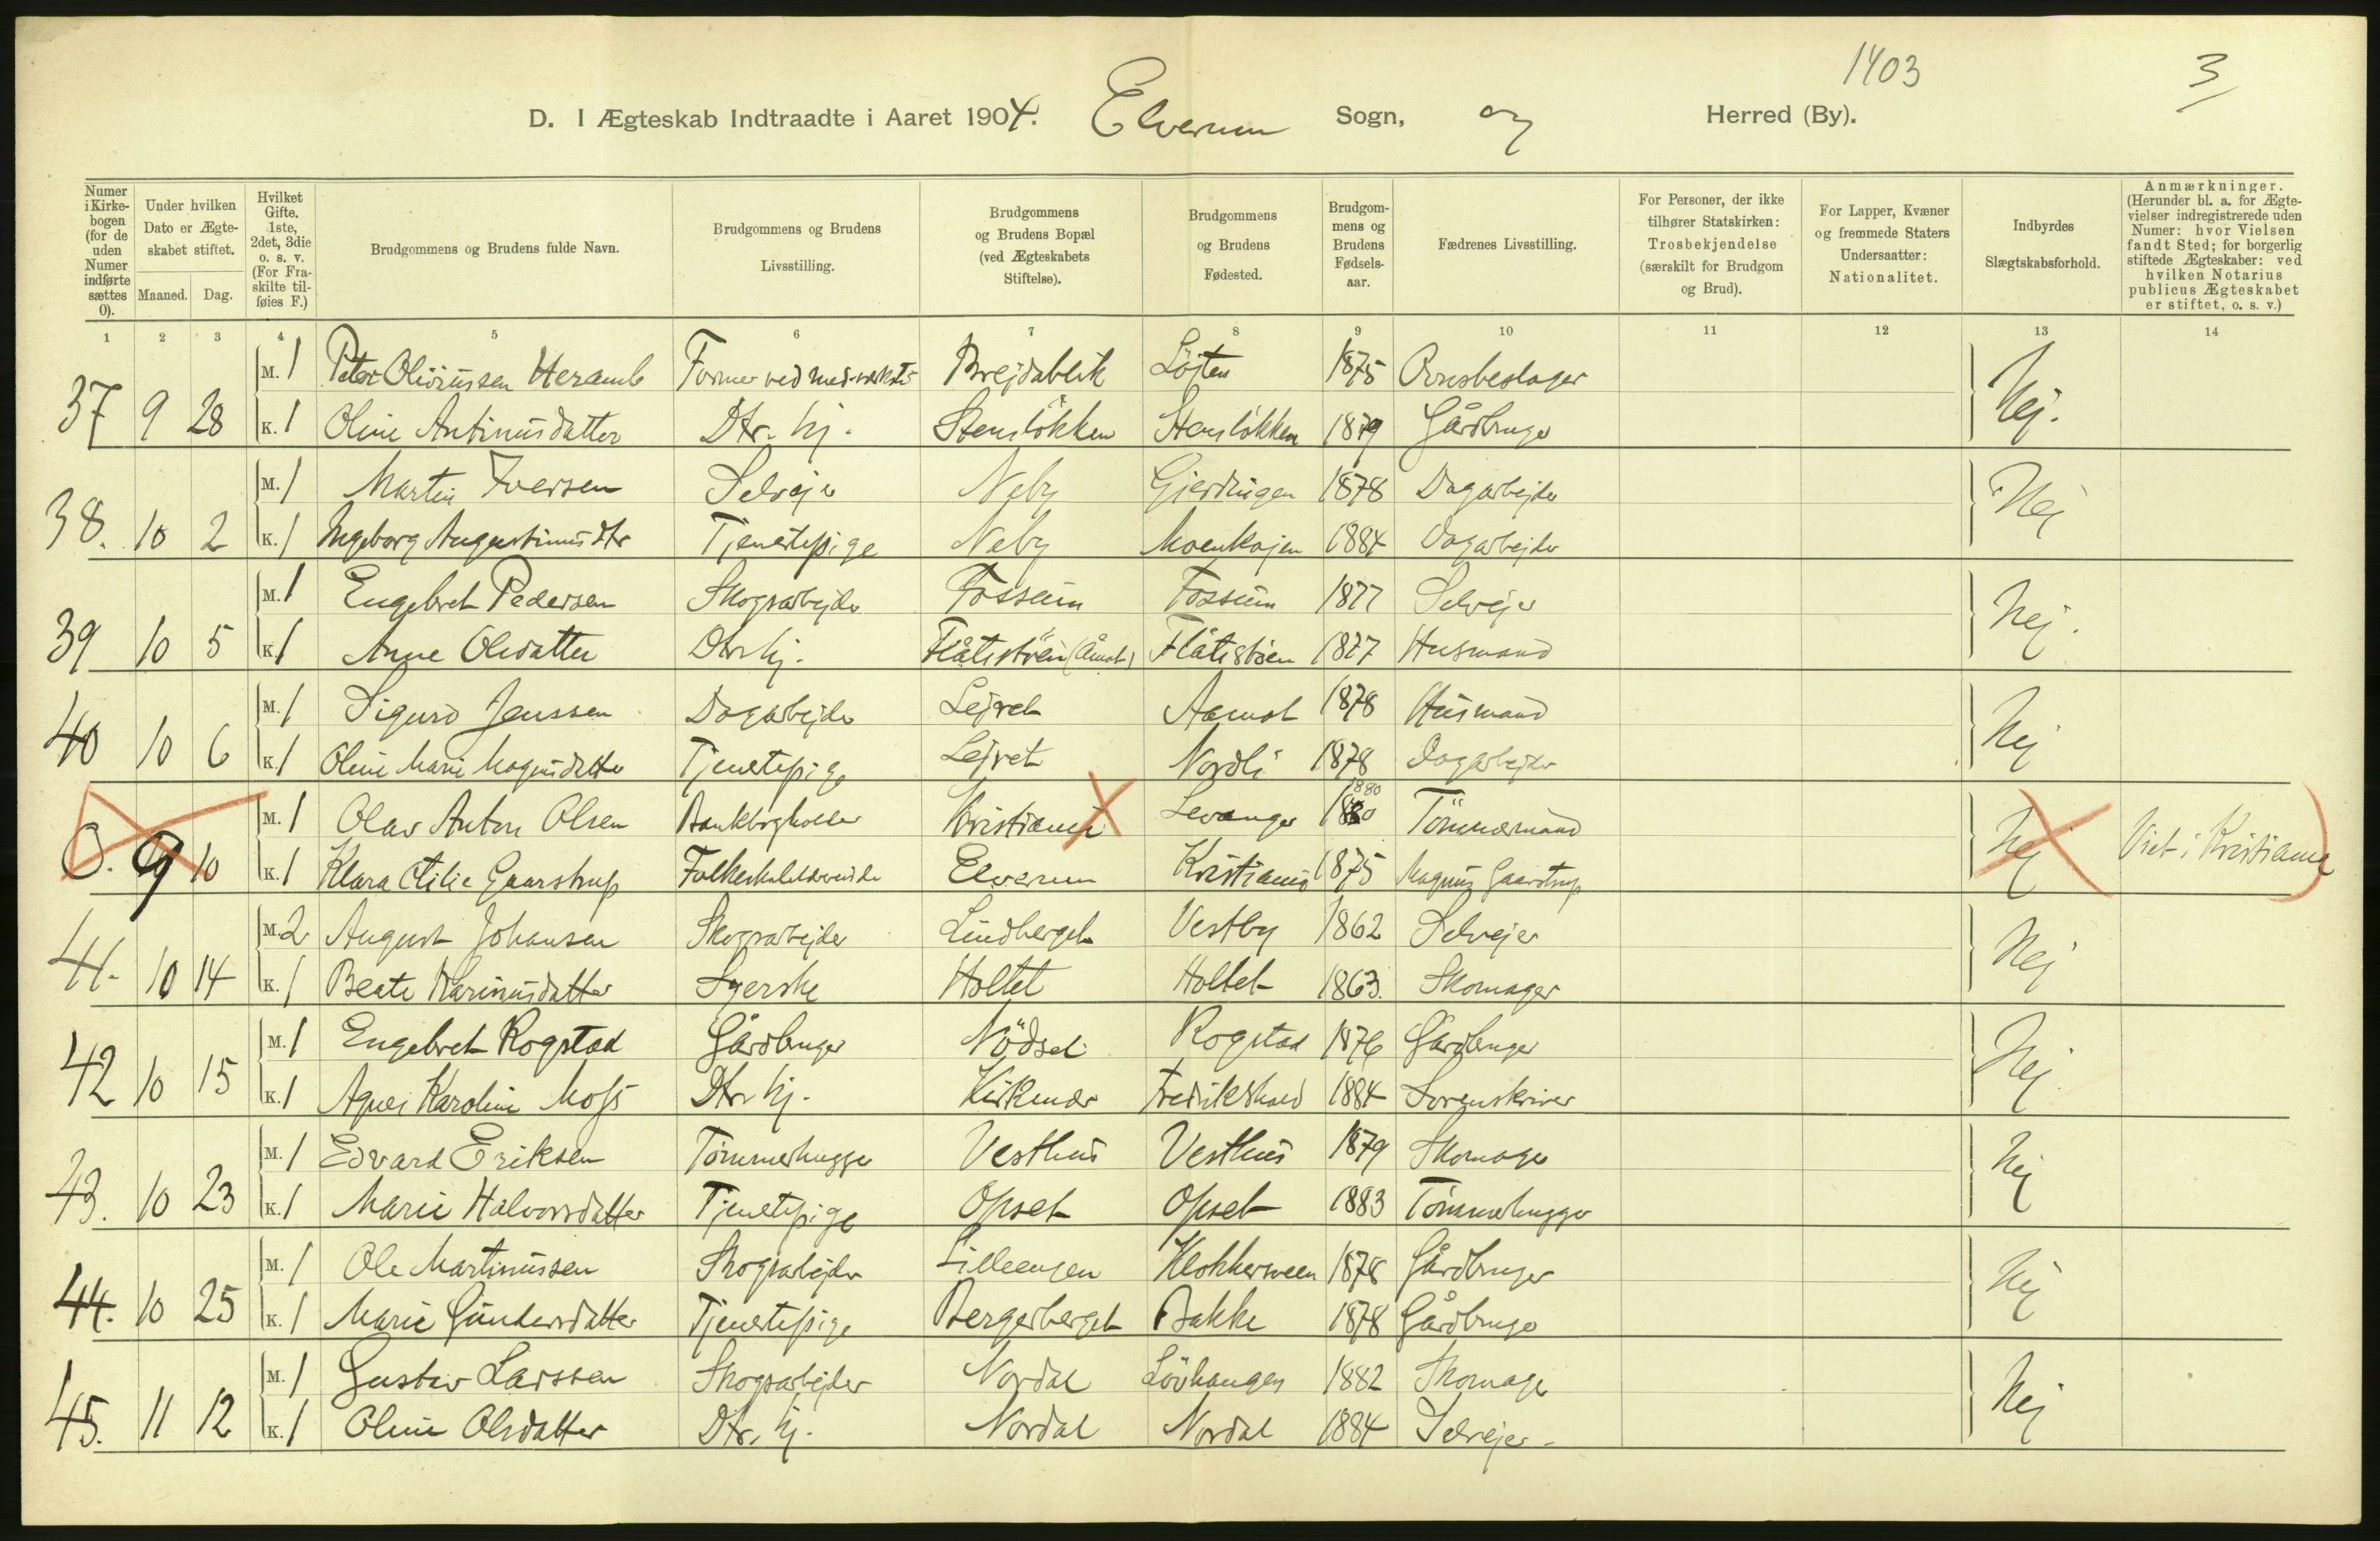 1403
3
D. I Ægteskab Indtraadte i Aaret 1904. Elverum Sogn, og Herred (By).
Numer i Kirke-bogen (for de uden Numer indførte sættes 0).
Under hvilken Dato er Ægte-skabet stiftet.
Maaned. Dag.
Hvilket Gifte. 1ste, 2det, 3die o. s. v. (For Fra-skilte til-føies F.)
Brudgommens og Brudens fulde Navn.
Brudgommens og Brudens Livsstilling.
Brudgommens og Brudens Bopæl (ved Ægteskabets Stiftelse).
Brudgommens og Brudens Fødested.
Brudgom-mens og Brudens Fødsels-aar.
Fædrenes Livsstilling.
For Personer, der ikke tilhører Statskirken: Trosbekjendelse (særskilt for Brudgom og Brud).
For Lapper, Kvæner og fremmede Staters Undersaatter: Nationalitet.
Indbyrdes Slægtskabsforhold.
Anmærkninger. (Herunder bl. a. for Ægte-vielser indregistrerede uden Numer: hvor Vielsen fandt Sted; for borgerlig stiftede Ægteskaber: ved hvilken Notarius publicus Ægteskabet er stiftet, o. s. v.)
1 2 3 4 5 6 7 8 9 10 11 12 13 14
M. 1 Peter Olivussen Heramb Former ved Brejdablik Løjten 1875
37 9 28 K. 1 Oline Antinusdatter Dtr. hj. Stensløkken Stensløkken 1879 Gårdbruger Nej.
M. 1 Martin Iversen Selvejer Næby Gjerdingen 1878 Dagarbejder
38. 10 2 K. 1 Ingeborg Augustinusdtr Tjenestepige Næby Moenkojen 1884 Dagarbejder Nej
M. 1 Engebret Pedersen Skogsarbejder Fossum Fossum 1877 Selvejer
39 10 5 K. 1 Anne Olsdatter Dtr. hj. Flåtestöen (Åmot) Flåtestöen 1877 Husmand Nej.
M. 1 Sigurd Jenssen Dagarbejder Lejret Aamot 1878 Husmand
40 10 6 K. 1 Oline Marie Magnusdatter Tjenestepige Lejret Nordli 1878 Dagarbejder Nej
M. 1 Olav Anton Olsen Bankbogholder Kristiania Levanger 1880 1880 Tömmermand
0. 9 10 K. 1 Klara Otilie Gaarstrup Folkeskolelærerinde Elverum Kristiania 1875 Magnus Gaarstrup Nej Viet i Kristiania
M. 2 August Johansen Skogsarbejder Lindberget Vestby 1862 Selvejer
41. 10 14 K. 1 Beate Karinusdatter Syerske Holtet Holtet 1863. Skomager Nej
M. 1 Engebret Rogstad Gårdbruger Nödset Rogstad 1876 Gårdbruger
42 10 15 K. 1 Agnes Karoline Moss Dtr. hj. Kirkenær Fredrikshald 1884 Sorenskriver Nej.
M. 1 Edvard Eriksen Tömmerhugger Vesthus Vesthus 1879 Skomager
43. 10 23 K. 1 Marie Halvorsdatter Tjenestepige Opset Opset 1883 Tömmerhugger Nej
M. 1 Ole Martinussen Skogsarbejder Lilleengen Klokkersveen 1878 Gårdbruger
44. 10 25 K. 1 Marie Gundersdatter Tjenestepige Bergerberget Bakke 1878 Gårdbruger Nej
M. 1 Gustav Larssen Skogsarbejder Nordal Lövhaugen 1882 Skomager
45. 11 12 K. 1 Oline Olsdatter Dtr. hj. Nordal Nordal 1884 Selvejer. Nej